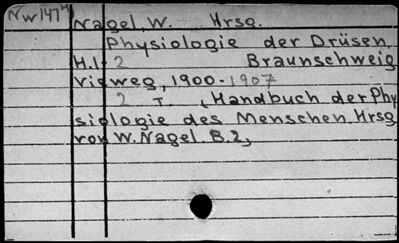 Nw 147 4 Nagel, W. Hrsg.
Physiologie der Drüsen.
H.1-2 Braunschweig
Vieweg, 1900-1907
2 T. (Handbuch der Phy
siologie des Menschen. Hrsg
von W. Nagel. B. 2,